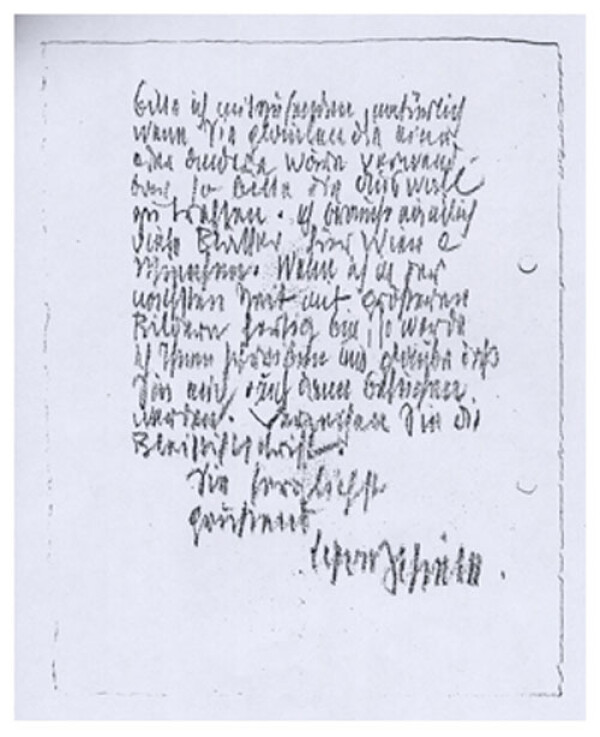 bitte ich mitzusenden, natürlich
wenn Sie glauben die eine
oder andere wäre verwend-
bar, so bitte die Auswahl
zu treffen. ich brauche nämlich
diese Blätter für Wien &
München. Wenn ich in der
nächsten Zeit mit größeren
Bildern fertig bin, so werde
ich Ihnen schreiben und glaube daß
Sie mich auch dann besuchen
werden. Verzeihen Sie die
Bleistiftschrift.
Sie herzlichst
grüßend
Egon Schiele.